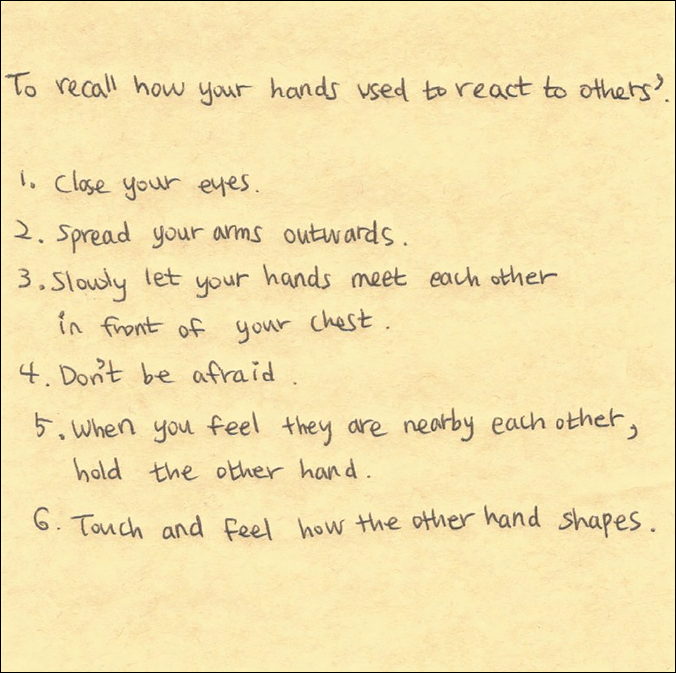 To recall how your hands used to react to others'.
1. Close your eyes.
2. Spread your arms outwards.
3. Slowly let your hands meet each other
in front of your chest.
4. Don't be afraid.
5. When you feel they are nearby each other,
hold the other hand.
6. Touch and feel how the other hand shapes.